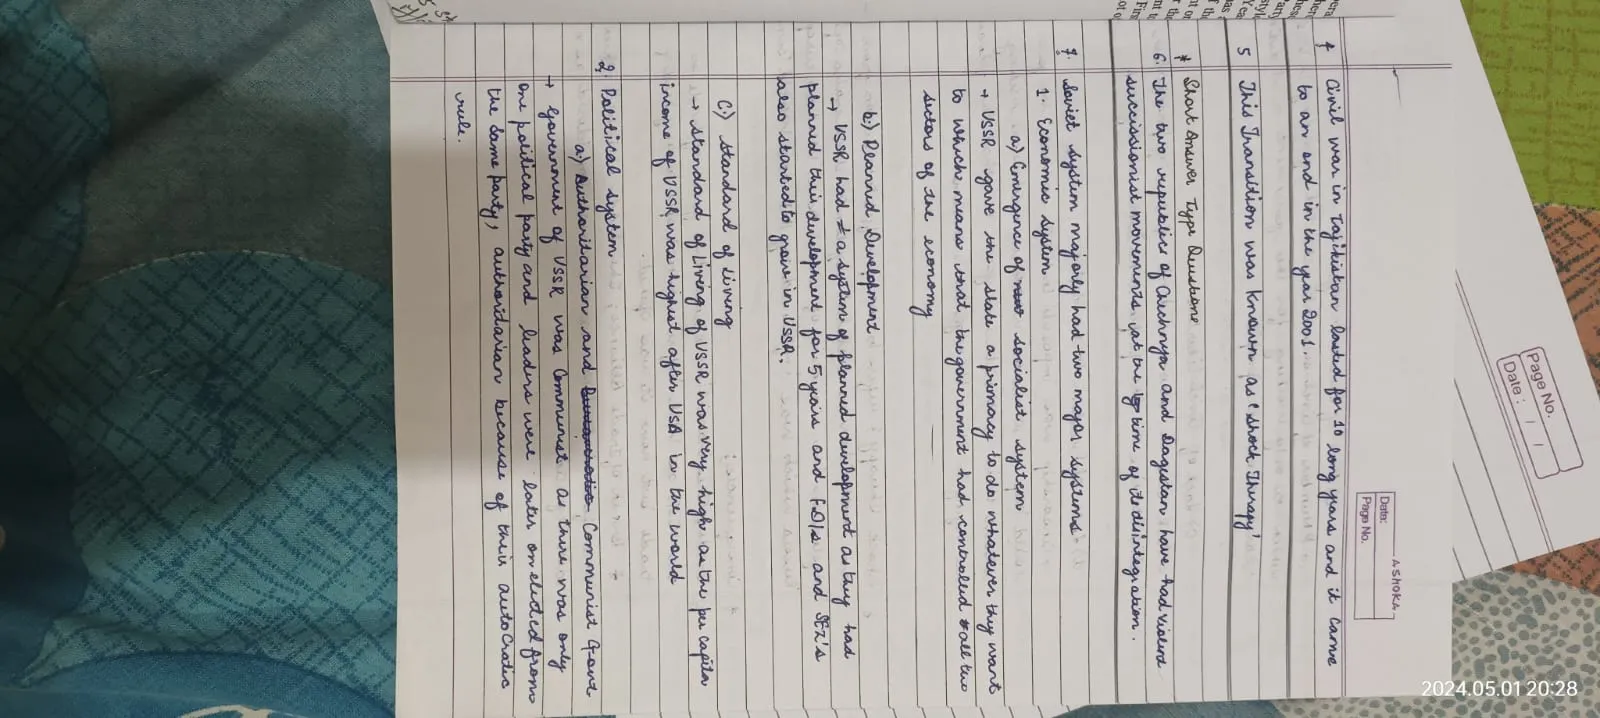 ASHOKA
Date:
Page No.
4 Civil war in Tajikistan lasted for 10 long years and it came
to an end in the year 2001.
5 This Transition was known as 'shock Therapy'
* Short Answer Type Questions
6. The two republics of Chechnya and Dagistan have had violent
successionist movements at the time of its disintegration.
7. Soviet system majorly had two major systems
1. Economic system
a) Emergence of socialist system
→ USSR gave the state a primacy to do whatever they want
to which means that the government had controlled all the
sectors of the economy
b:) Planned Development
→ USSR had a system of planned development as they had
planned their development for 5 years and FDIs and SEZ's
also started to grow in USSR.
C:) standard of Living
→ standard of Living of USSR was very high as the per capita
income of USSR was highest after USA in the world
2. Political system
a:) Authoritarian and Communist Govt
→ Government of USSR was Communist as there was only
one political party and leaders were later on elected from
the same party, authoritarian because of their autocratic
rule.
Page No.
Date : / /
2024.05.01 20:28